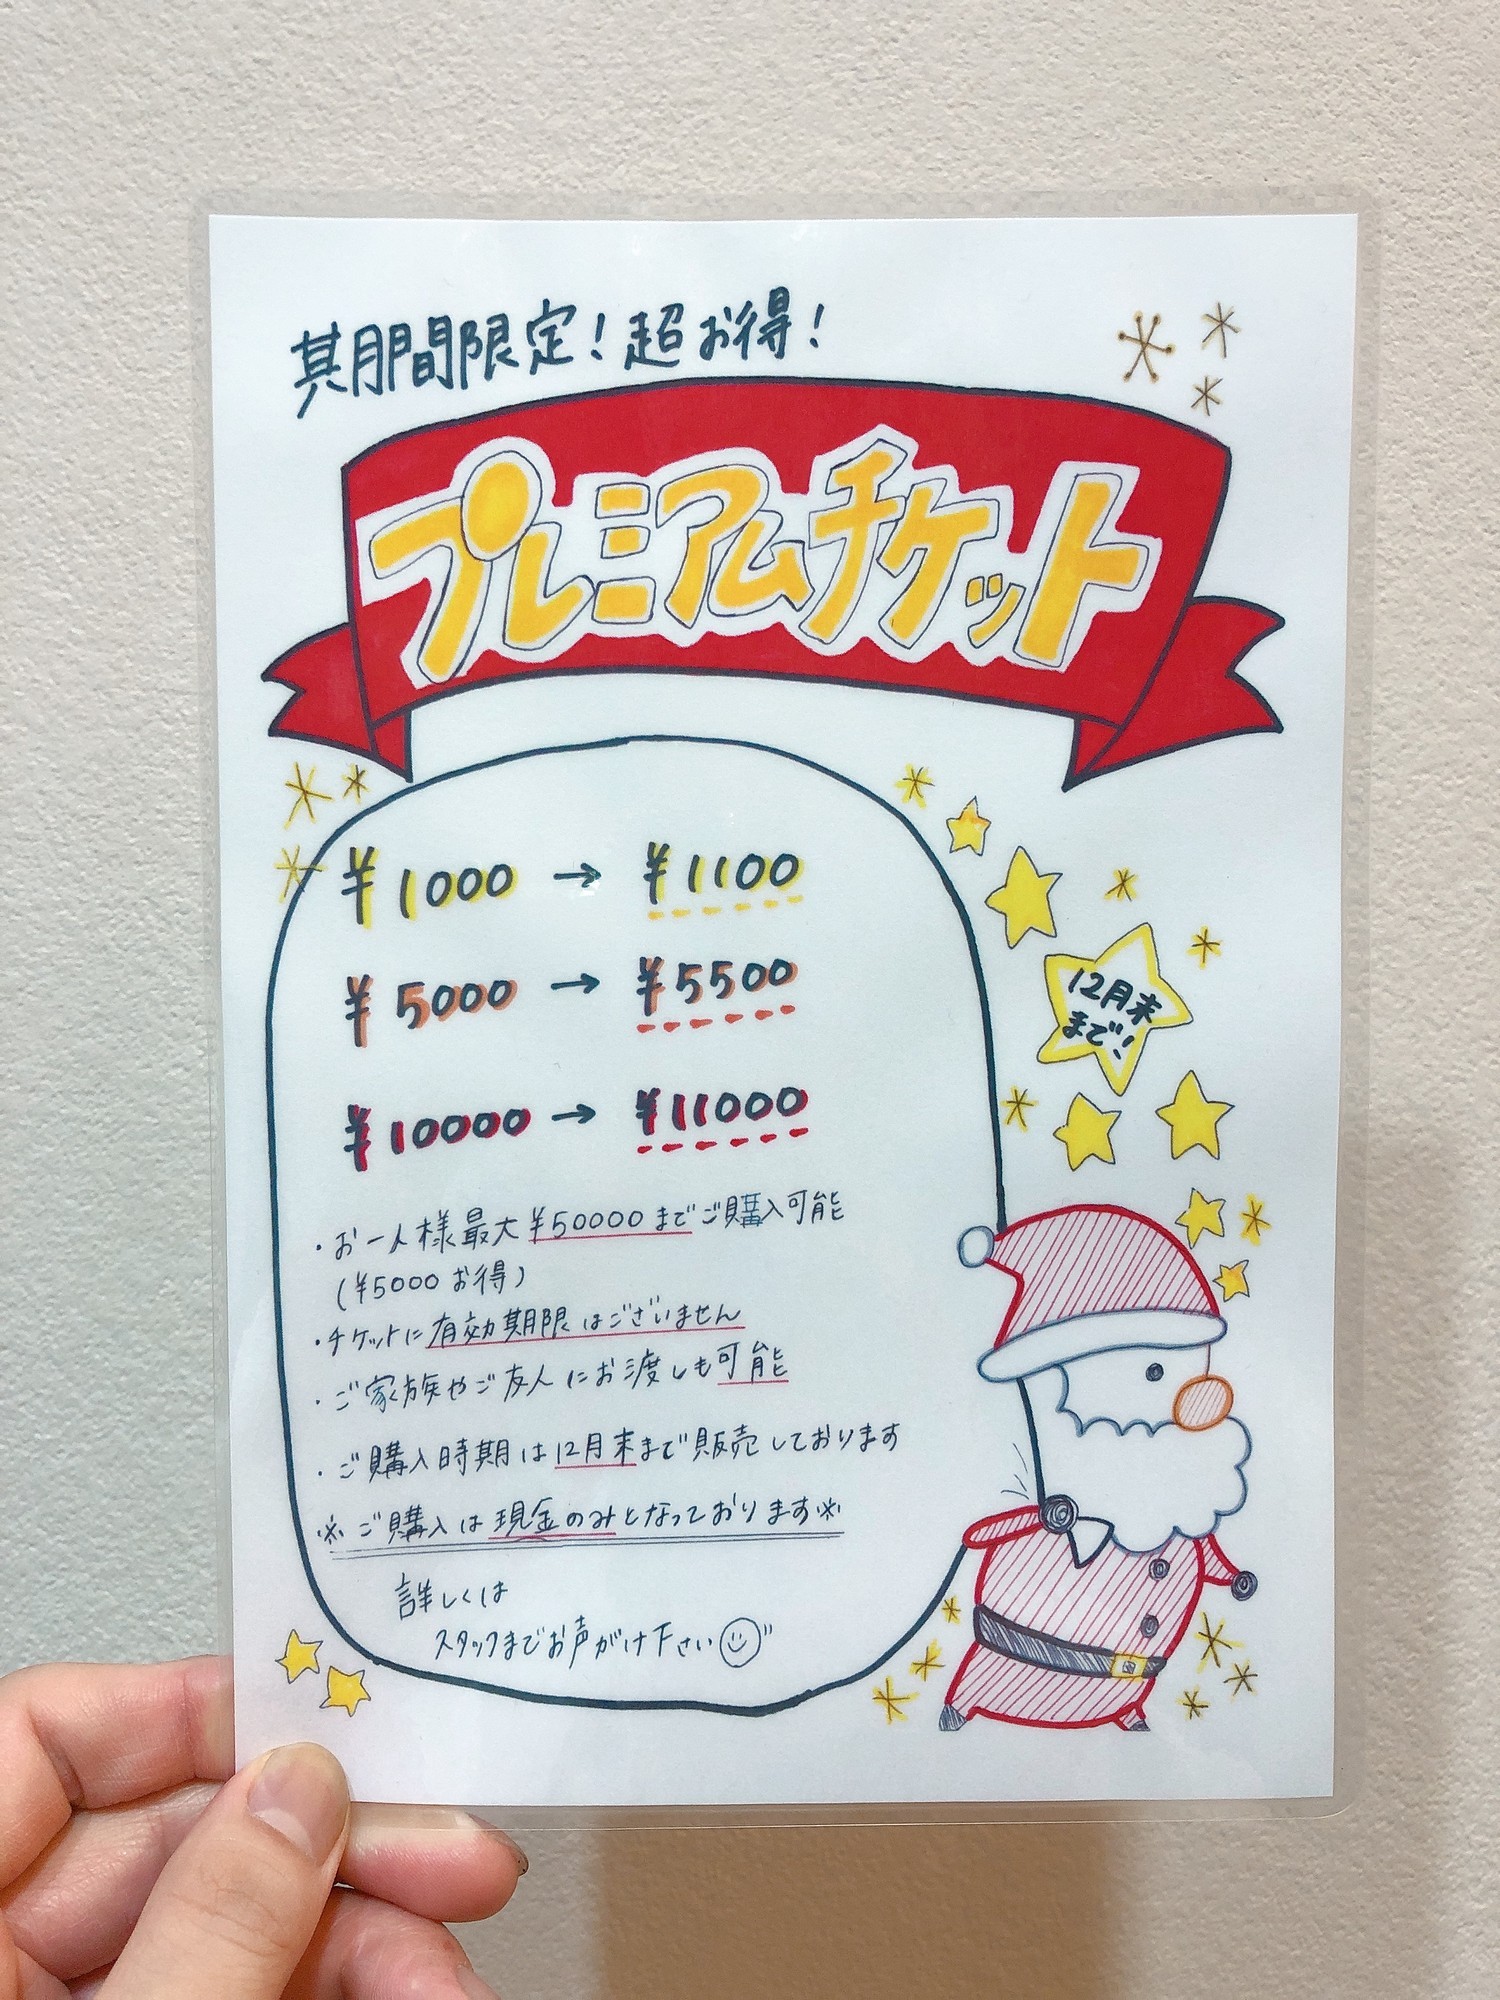 期間限定！超お得！
プレミアムチケット
¥1000 → ¥1100
¥5000 → ¥5500
¥10000 → ¥11000
12月末
まで！
・お一人様最大¥50000までご購入可能
(¥5000お得)
・チケットに有効期限はございません
・ご家族やご友人にお渡しも可能
・ご購入時期は12月末まで販売しております
※ご購入は現金のみとなっております※
詳しくは
スタッフまでお声がけ下さい